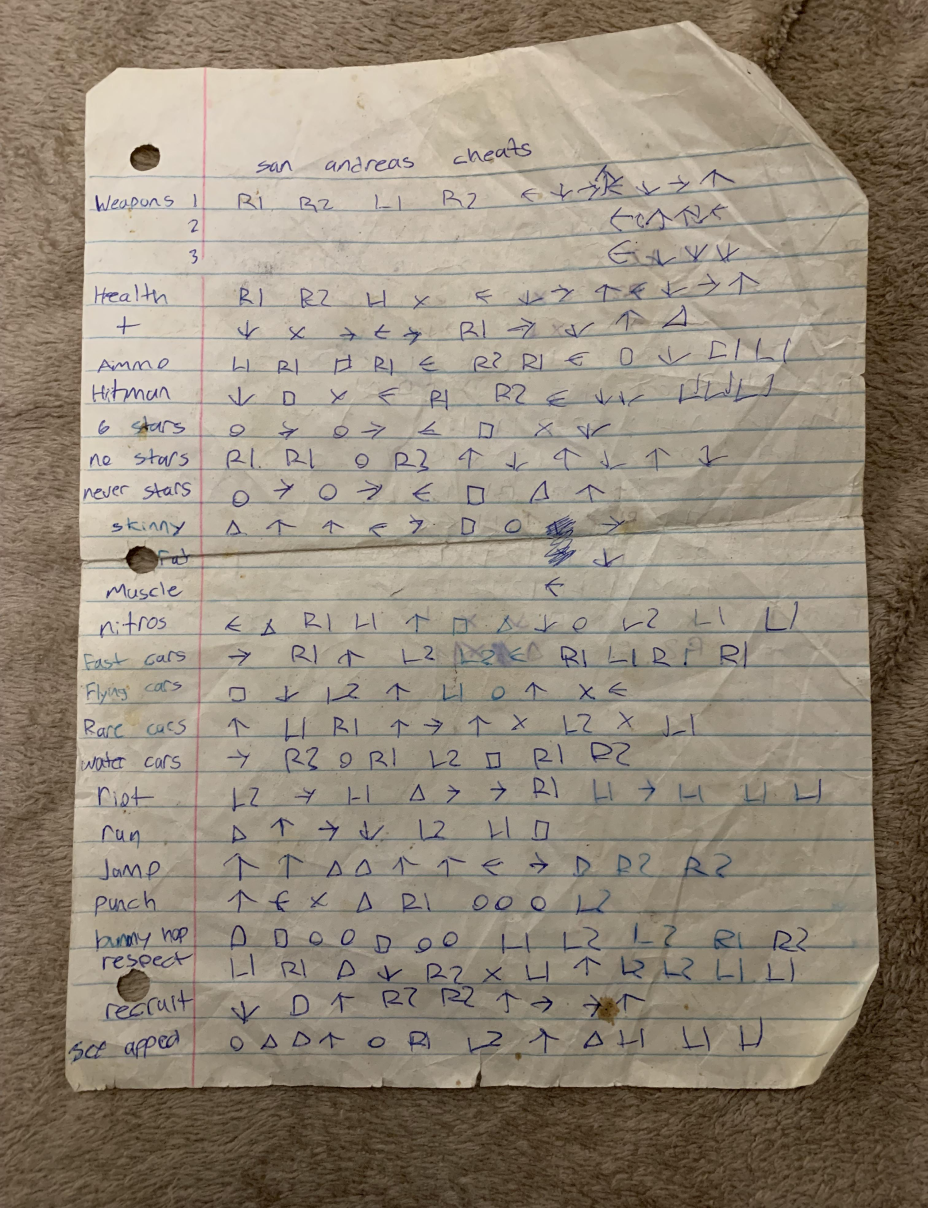 san andreas cheats
Weapons 1 R1 R2 L1 R2 ← ↓ → ↑ ← ↓ → ↑
2 ← ↑ ←
3 ← ↓ ↓ ↓
Health R1 R2 L1 × ← ↓ → ↑ ← ↓ → ↑
+ ↓ × → ← → R1 → ↓ ↑ △
Ammo L1 R1 □ R1 ← R2 R1 ← □ ↓ L1 L1
Hitman ↓ □ × ← R1 R2 ← ↓ ↓ L1 L1 L1
6 stars ○ → ○ → ← □ × ↓
no stars R1 R1 ○ R2 ↑ ↓ ↑ ↓ ↑ ↓
never stars ○ → ○ → ← □ △ ↑
skinny △ ↑ ↑ ← → □ ○ →
Fat ↓
Muscle ←
nitros ← △ R1 L1 ↑ □ △ ↓ ○ L2 L1 L1
Fast cars → R1 ↑ L2 L2 ← R1 L1 R1 R1
Flying cars □ ↓ L2 ↑ L1 ○ ↑ × ←
Rare cars ↑ L1 R1 ↑ → ↑ × L2 × L1
water cars → R2 ○ R1 L2 □ R1 R2
riot L2 → L1 △ → → R1 L1 → L1 L1 L1
run △ ↑ → ↓ L2 L1 □
Jump ↑ ↑ △ △ ↑ ↑ ← → □ R2 R2
punch ↑ ← × △ R1 ○ ○ ○ L2
bunny hop △ □ ○ ○ □ ○ ○ L1 L2 L2 R1 R2
respect L1 R1 △ ↓ R2 × L1 ↑ L2 L2 L1 L1
recruit ↓ □ ↑ R2 R2 ↑ → → ↑
sex apped ○ △ △ ↑ ○ R1 L2 ↑ △ L1 L1 L1